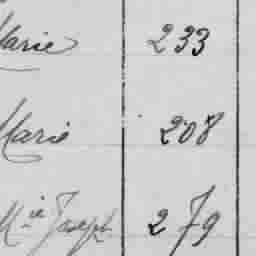 Marie 233
Marie 208
Mie Joseph 279